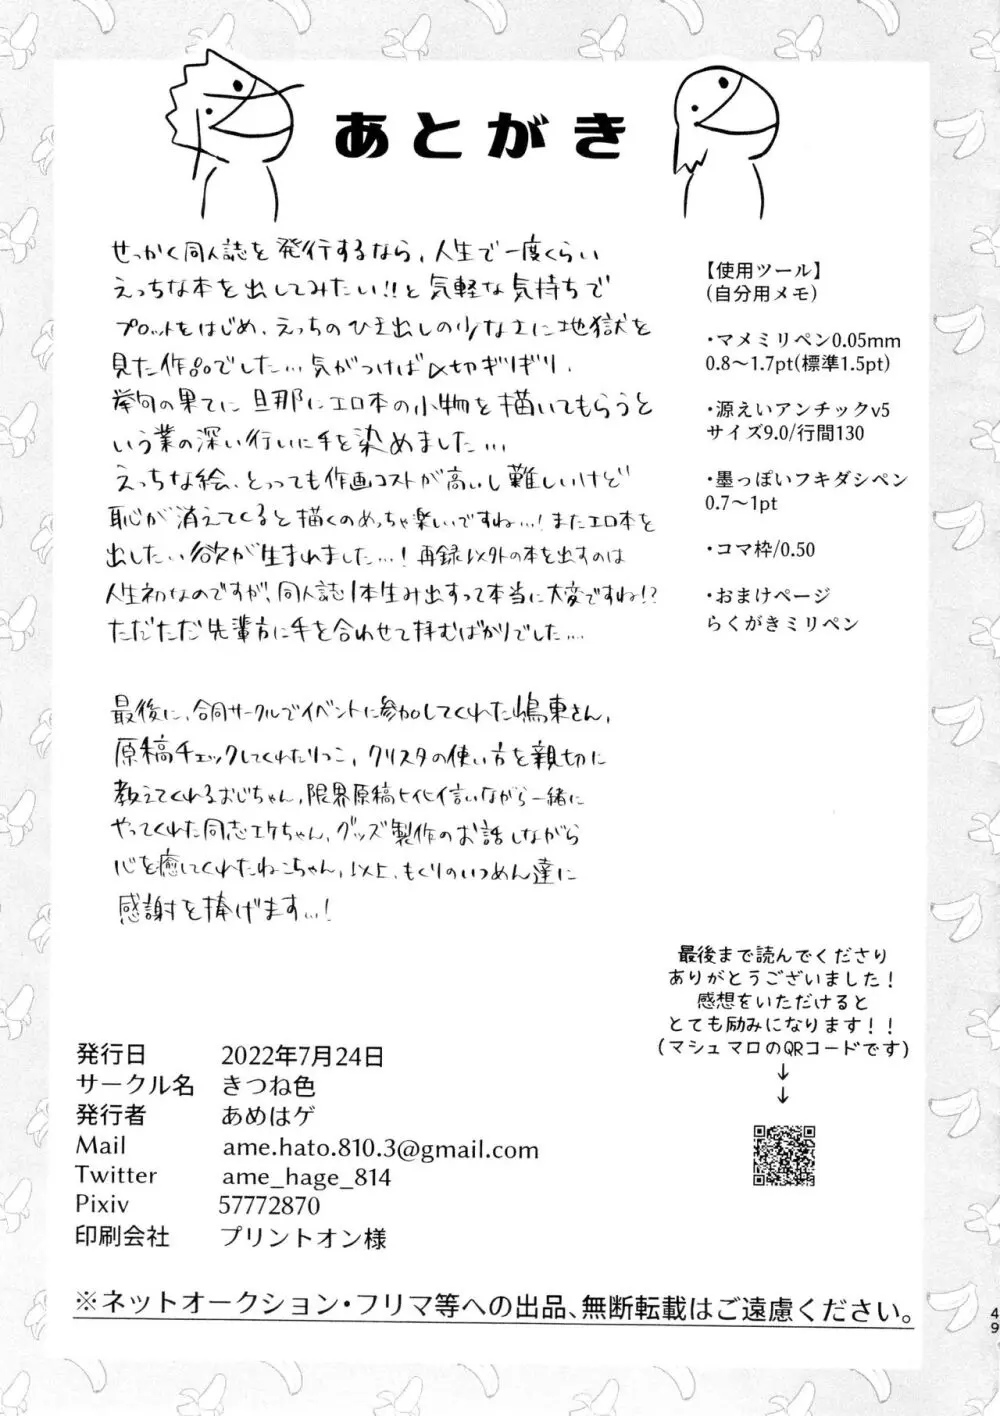 あとがき
せっかく同人誌を発行するなら、人生で一度くらい
えっちな本を出してみたい!!と気軽な気持ちで
プロットをはじめ、えっちのひき出しの少なさに地獄を
見た作品でした…気がつけば〆切ギリギリ、
挙句の果てに旦那にエロ本の小物を描いてもらうと
いう業の深い行いに手を染めました…
えっちな絵、とっても作画コストが高いし難しいけど
恥が消えてくると描くのめっちゃ楽しいですね…!またエロ本を
出したい欲が生まれました…!再録以外の本を出すのは
人生初なのですが、同人誌1本生み出すって本当に大変ですね!?
ただただ先輩方に手を合わせて拝むばかりでした…
最後に、合同サークルでイベントに参加してくれた嶋東さん、
原稿チェックしてくれたりっこ、クリスタの使い方を親切に
教えてくれるおじちゃん、限界原稿ヒイヒイ言いながら一緒に
やってくれた同志エケちゃん、グッズ製作のお話しながら
心を癒してくれたねこちゃん、以上、もぐりのいつめん達に
感謝を捧げます…!
【使用ツール】
(自分用メモ)
・マメミリペン0.05mm
0.8〜1.7pt(標準1.5pt)
・源えいアンチックv5
サイズ9.0/行間130
・墨っぽいフキダシペン
0.7〜1pt
・コマ枠/0.50
・おまけページ
らくがきミリペン
最後まで読んでくださり
ありがとうございました!
感想をいただけると
とても励みになります!!
(マシュマロのQRコードです)
↓
↓
発行日 2022年7月24日
サークル名 きつね色
発行者 あめはゲ
Mail ame.hato.810.3@gmail.com
Twitter ame_hage_814
Pixiv 57772870
印刷会社 プリントオン様
※ネットオークション・フリマ等への出品、無断転載はご遠慮ください。
49